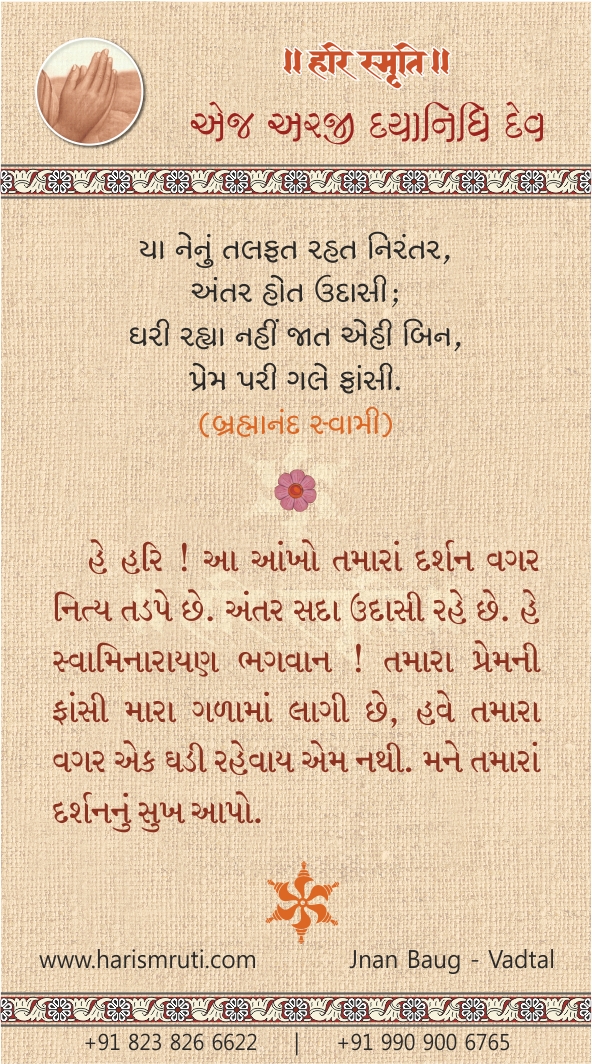 ॥ હરિ સ્મૃતિ ॥
એજ અરજી દયાનિધિ દેવ
યા નેનું તલફત રહત નિરંતર,
અંતર હોત ઉદાસી;
ઘરી રહ્યા નહીં જાત એહી બિન,
પ્રેમ પરી ગલે ફાંસી.
(બ્રહ્માનંદ સ્વામી)
હે હરિ ! આ આંખો તમારાં દર્શન વગર
નિત્ય તડપે છે. અંતર સદા ઉદાસી રહે છે. હે
સ્વામિનારાયણ ભગવાન ! તમારા પ્રેમની
ફાંસી મારા ગળામાં લાગી છે, હવે તમારા
વગર એક ઘડી રહેવાય એમ નથી. મને તમારાં
દર્શનનું સુખ આપો.
www.harismruti.com Jnan Baug - Vadtal
+91 823 826 6622 | +91 990 900 6765